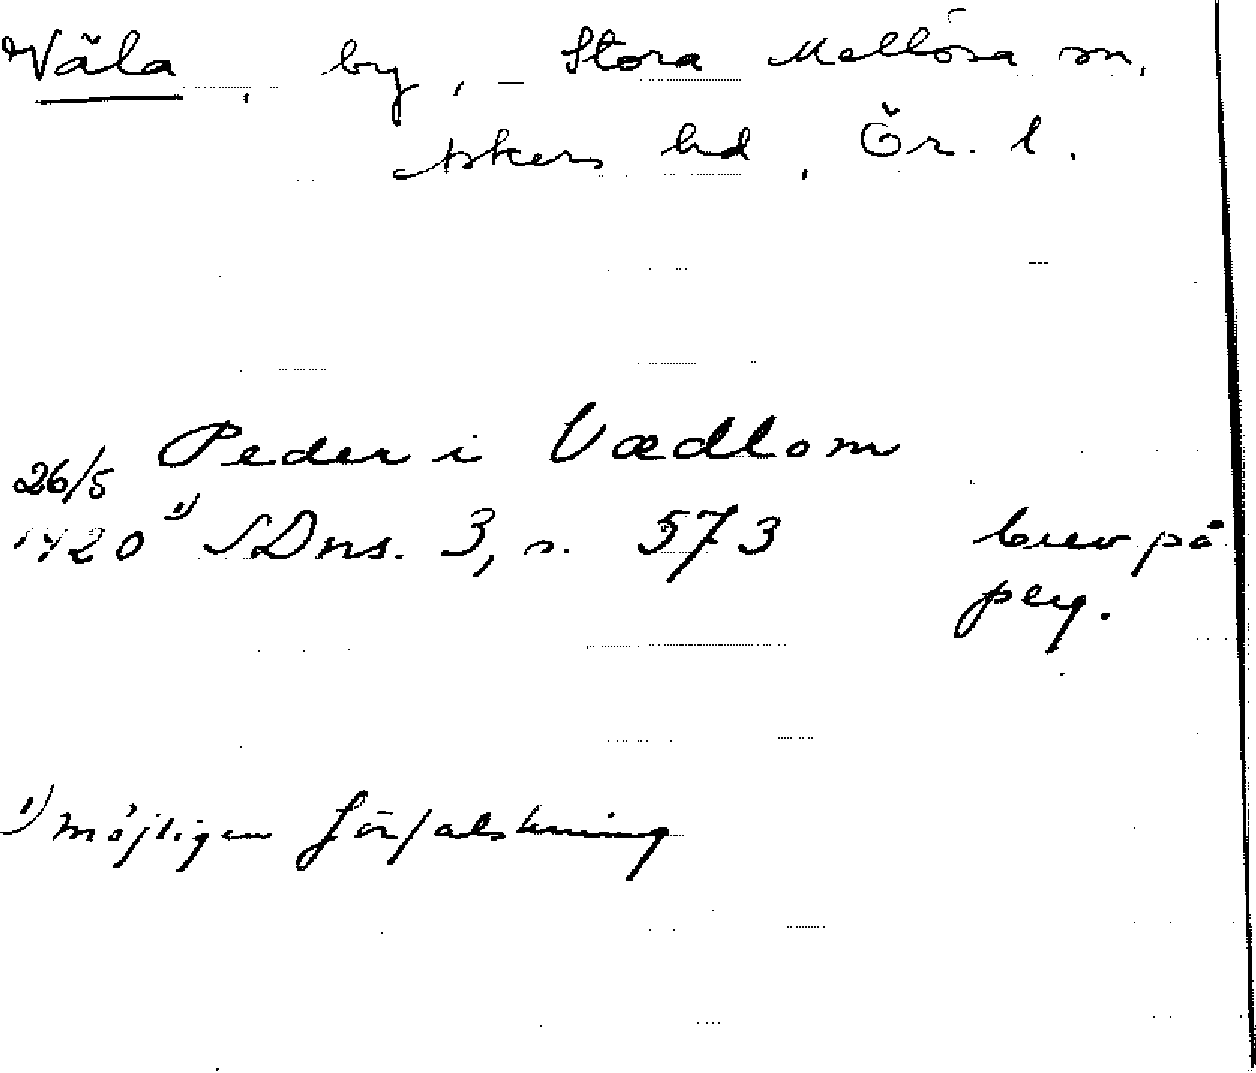 Väla, by, - Stora Mellösa sn,
Askers hd, Ör. l.
Peder i Vædlom
26/5
1420 1) SDns. 3, s. 573 brev på
perg.
1) möjligen förfalskning